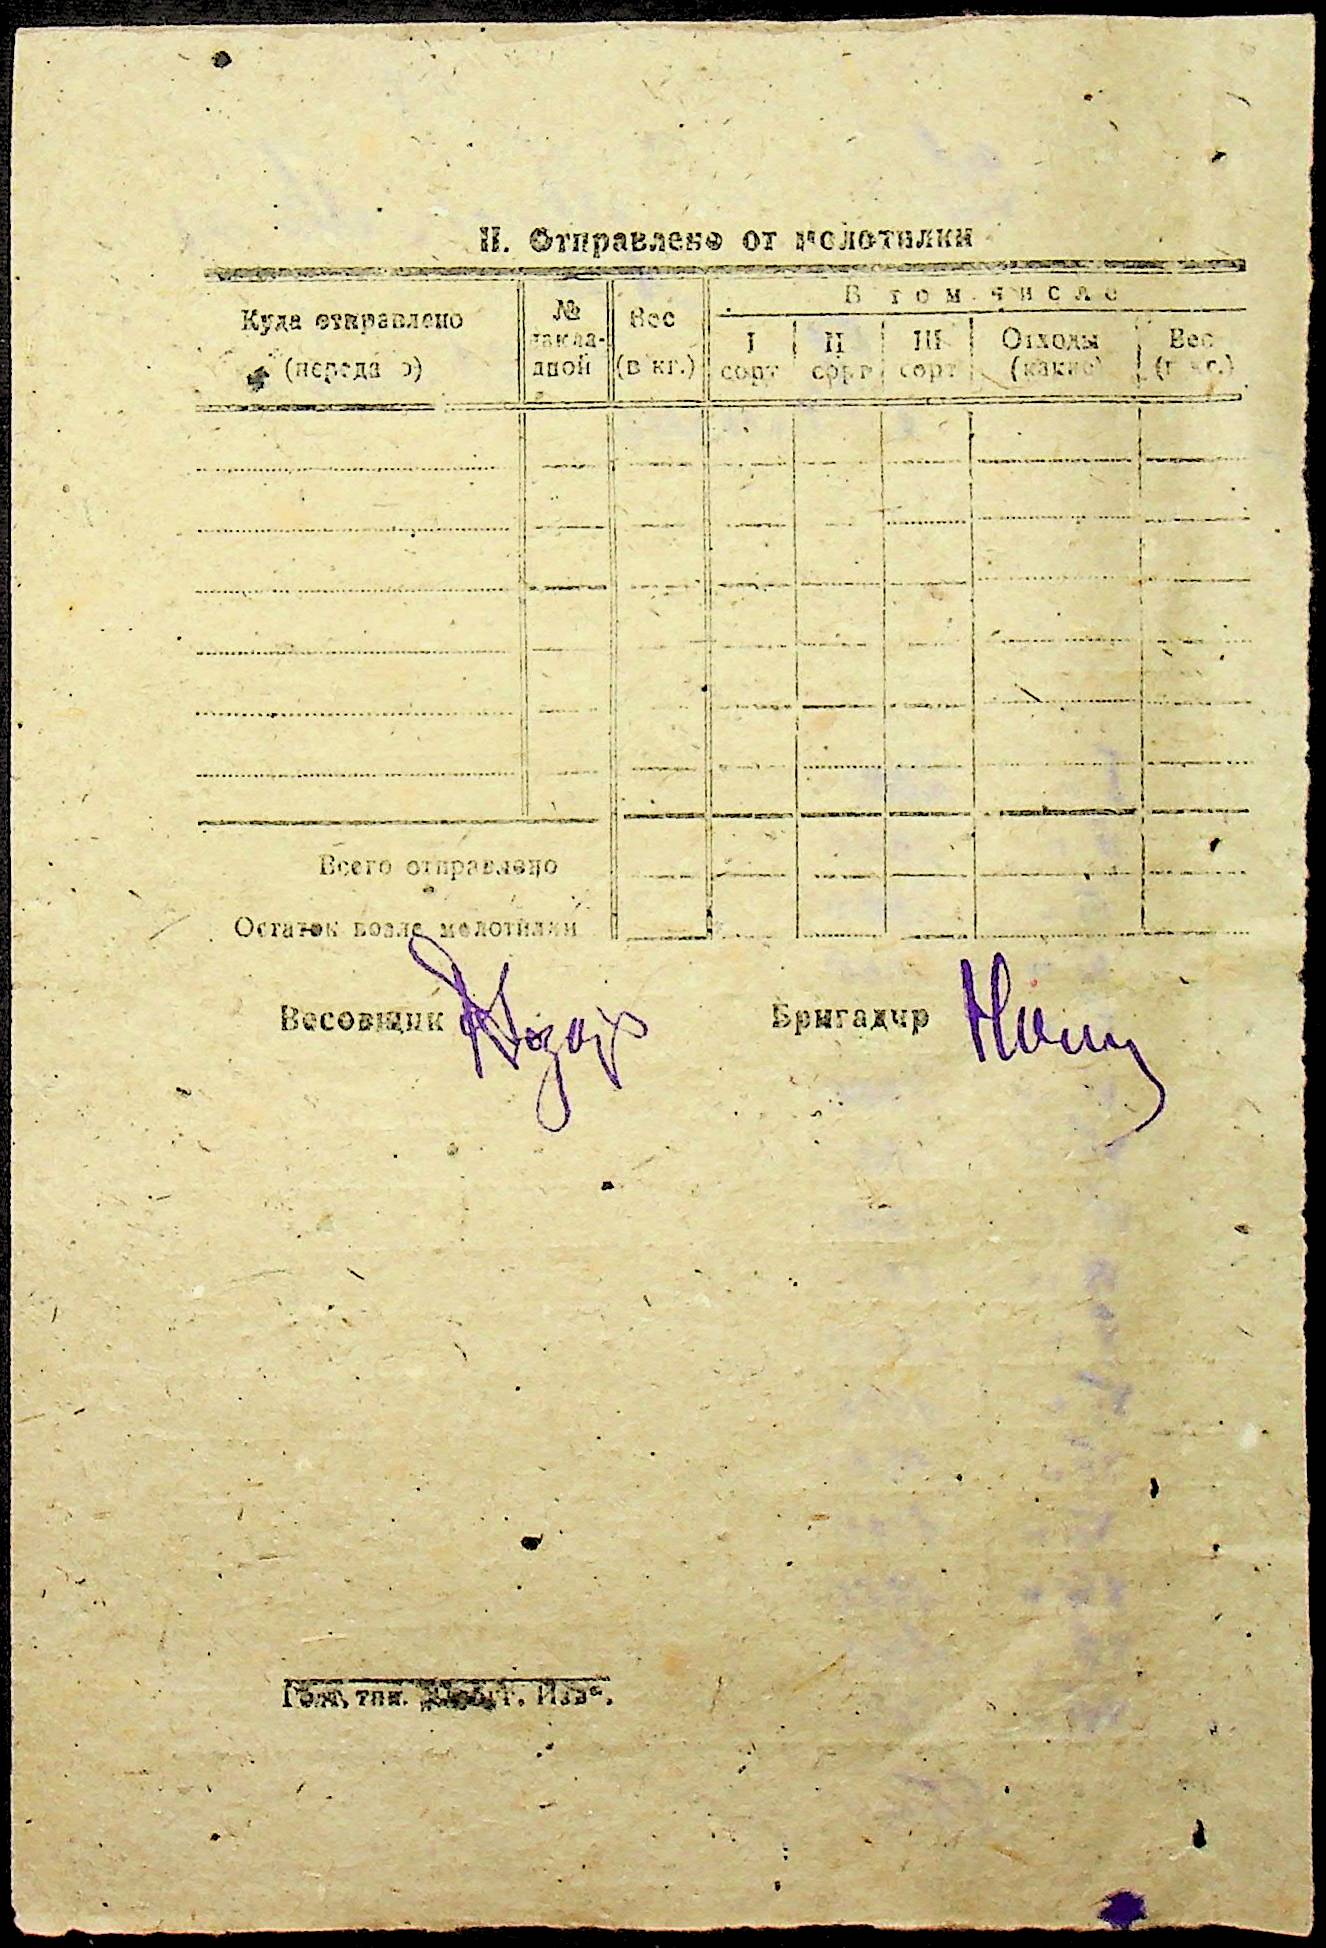 II. Отправлено от молотилки
Куда отправлено
(передано)
№
накла-
дной
Вес
(в кг.)
В том числе
I
сорт
II
сорт
III
сорт
Отходы
(какие)
Вес
(в кг.)
Всего отправлено
Остаток возле молотилки
Весовщик
Бригадир
тип.